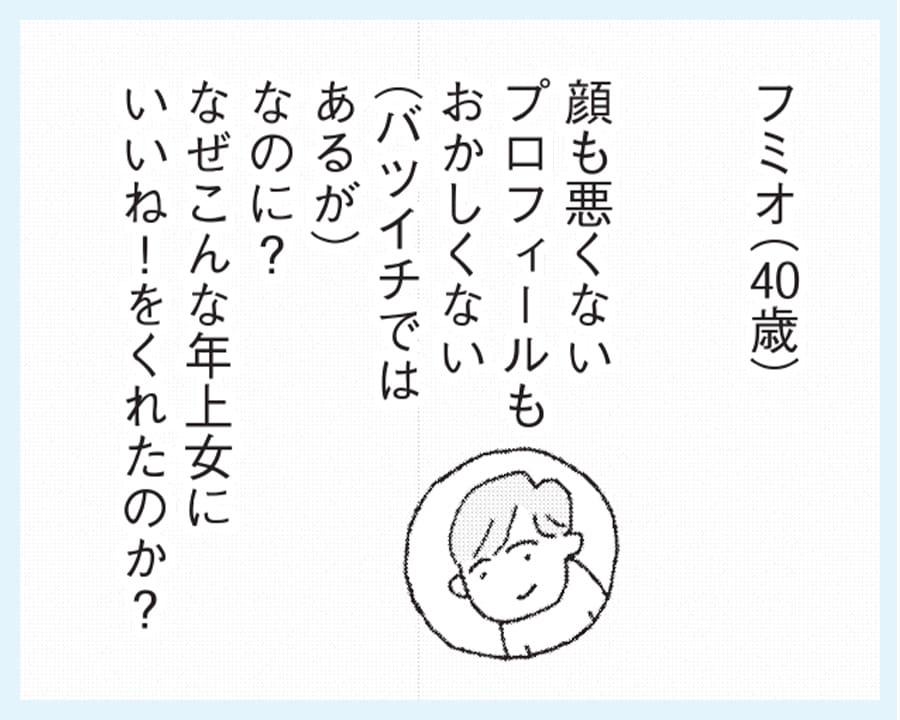 フミオ（40歳）
顔も悪くない
プロフィールも
おかしくない
（バツイチでは
あるが）
なのに？
なぜこんな年上女に
いいね！をくれたのか？